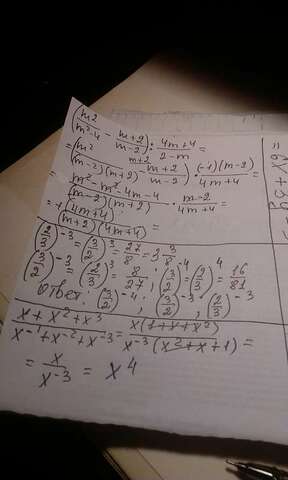 (m2/m²-4 - m+2/m-2) : 4m+4/2-m =
= (m²/(m-2)(m+2) - m+2/m-2) · (-1)(m-2)/4m+4 =
= m²-m²-4m-4/(m-2)(m+2) · m-2/4m+4 =
= +(4m+4)/(m+2)(4m+4) =
(2/3)^-3 = (3/2)^3 = 27/8 = 3 3/8
(3/2)^-3 = (2/3)^3 = 8/27 ; (3/2)^-4 = (2/3)^4 = 16/81
Ответ: (3/2)^-4 ; (3/2)^-3 ; (2/3)^-3
x+x²+x³/x^-1+x^-2+x^-3 = x(1+x+x²)/x^-3(x²+x+1) =
= x/x^-3 = x^4